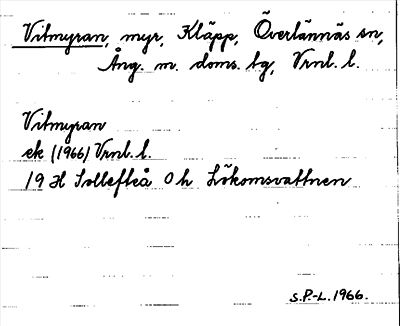 Vitmyran, myr, Kläpp, Överlännäs sn,
Ång. m. doms. tg, Vrnl. l.
Vitmyran
ek (1966) Vrnl. l.
19 H Sollefteå 0 h Lökomsvattnen
S.P.-L. 1966.